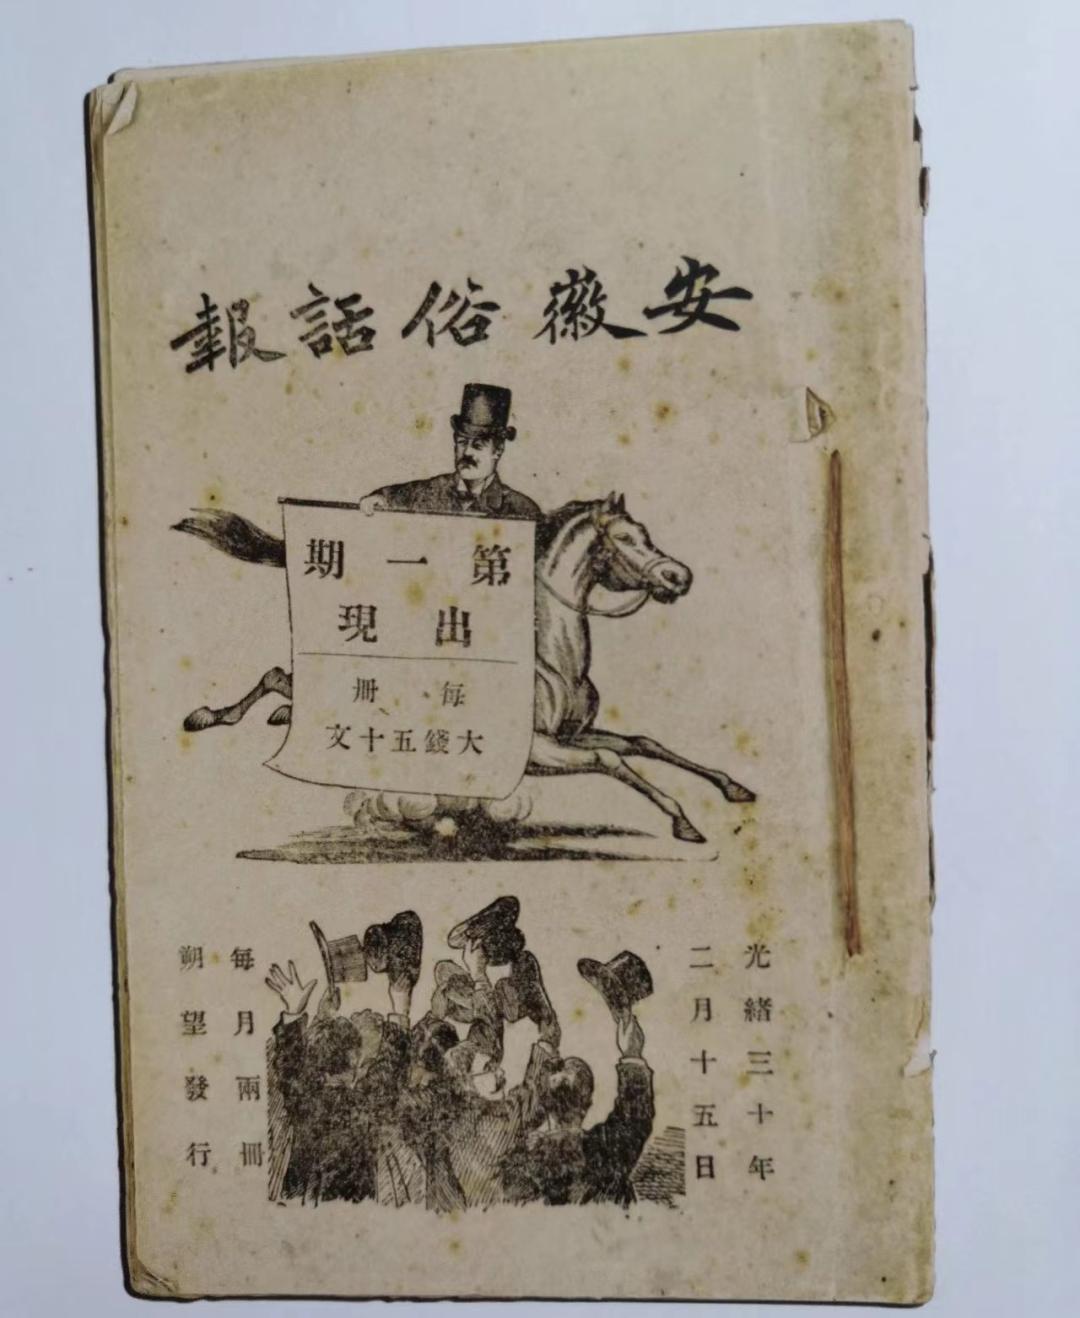 安徽俗話報
第一期
出現
每册
大錢五十文
光緒三十年
二月十五日
每月兩冊
朔望發行